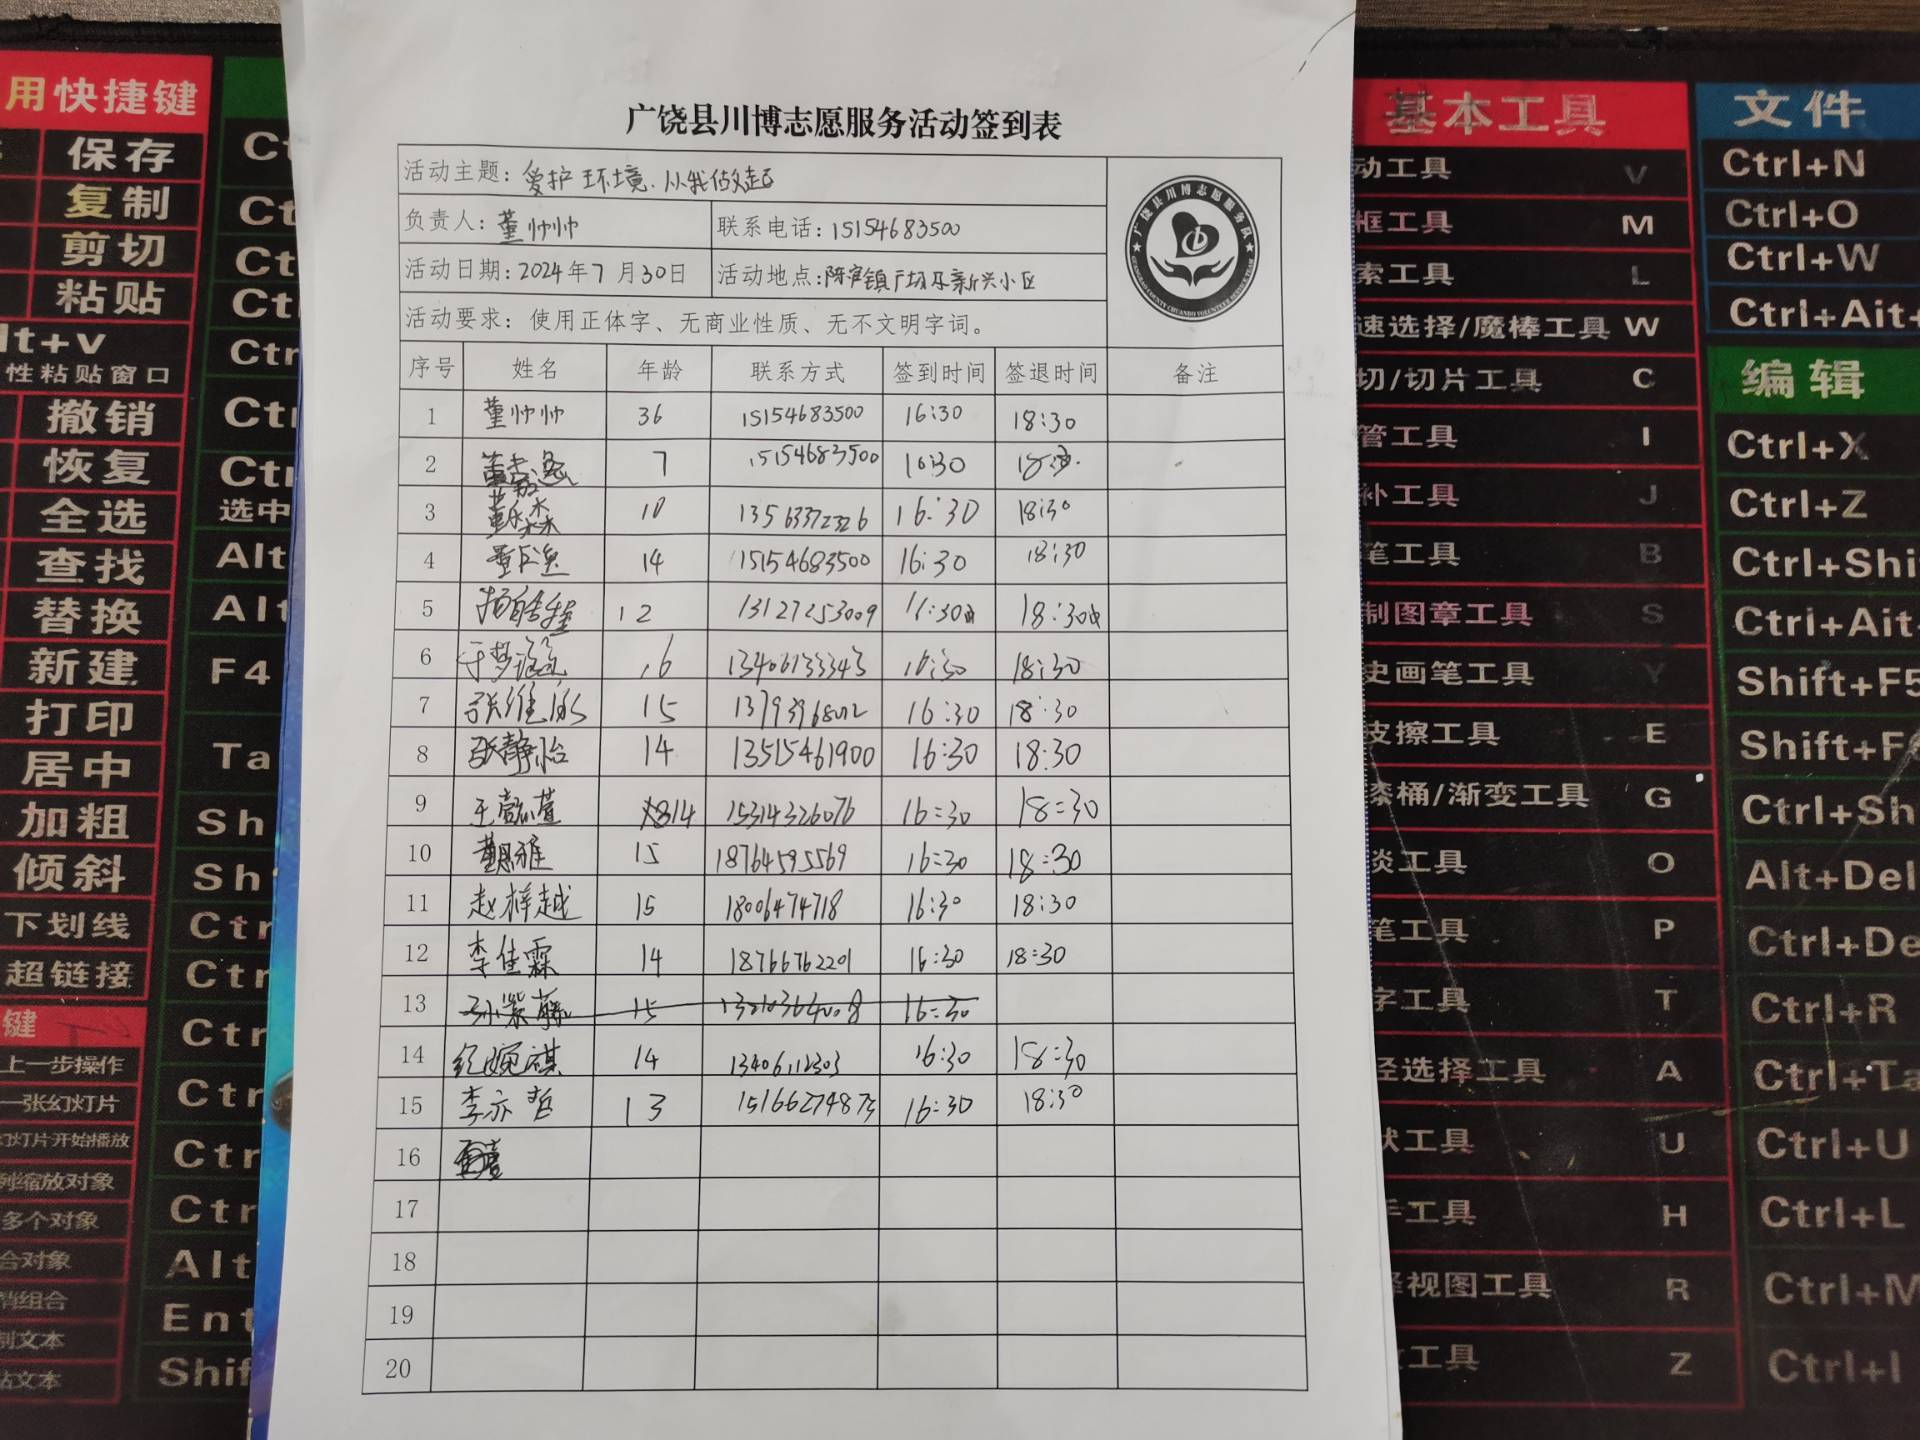 广饶县川博志愿服务活动签到表
活动主题：爱护环境.从我做起
负责人：董帅帅 联系电话：15154683500
活动日期：2024年7月30日 活动地点：陈官镇广场及新兴小区
活动要求：使用正体字、无商业性质、无不文明字词。
序号 姓名 年龄 联系方式 签到时间 签退时间 备注
1 董帅帅 36 15154683500 16:30 18:30
2 7 15154683500 16:30
3 10 13563372326 16:30 18:30
4 14 15154683500 16:30 18:30
5 12 13127253009 18:30
6 16 13406133343 16:30 18:30
7 15 16:30 18:30
8 张静怡 14 13515461900 16:30 18:30
9 14 15314326076 16:30 18:30
10 15 18764595569 16:30 18:30
11 赵梓越 15 18006474718 16:30 18:30
12 李佳霖 14 18766762201 16:30 18:30
13 孙紫藤 15 16:30
14 14 13406112303 16:30 18:30
15 李亦哲 13 15166274873 16:30 18:30
16
17
18
19
20
用快捷键
保存
复制
剪切
粘贴
lt+v
性粘贴窗口
撤销
恢复
全选
选中
查找 Alt
替换 Alt
新建 F4
打印
居中 Ta
加粗 Sh
倾斜 Sh
下划线 Ctr
超链接 Ctr
键
上一步操作
一张幻灯片
幻灯片开始播放
例缩放对象
多个对象
合对象 Alt
消组合 Ent
制文本
贴文本 Shif
基本工具
动工具 V
框工具 M
索工具 L
速选择/魔棒工具 W
切/切片工具 C
管工具 I
补工具 J
笔工具 B
制图章工具 S
史画笔工具 Y
皮擦工具 E
漆桶/渐变工具 G
淡工具 O
笔工具 P
字工具 T
径选择工具 A
状工具 U
手工具 H
视图工具 R
工具 Z
文件
Ctrl+N
Ctrl+O
Ctrl+W
Ctrl+Ait+
编辑
Ctrl+X
Ctrl+Z
Ctrl+Shi
Ctri+Ait
Shift+F5
Shift+F
Ctrl+Sh
Alt+Del
Ctrl+De
Ctrl+R
Ctrl+Ta
Ctrl+U
Ctrl+L
Ctrl+M
Ctrl+I